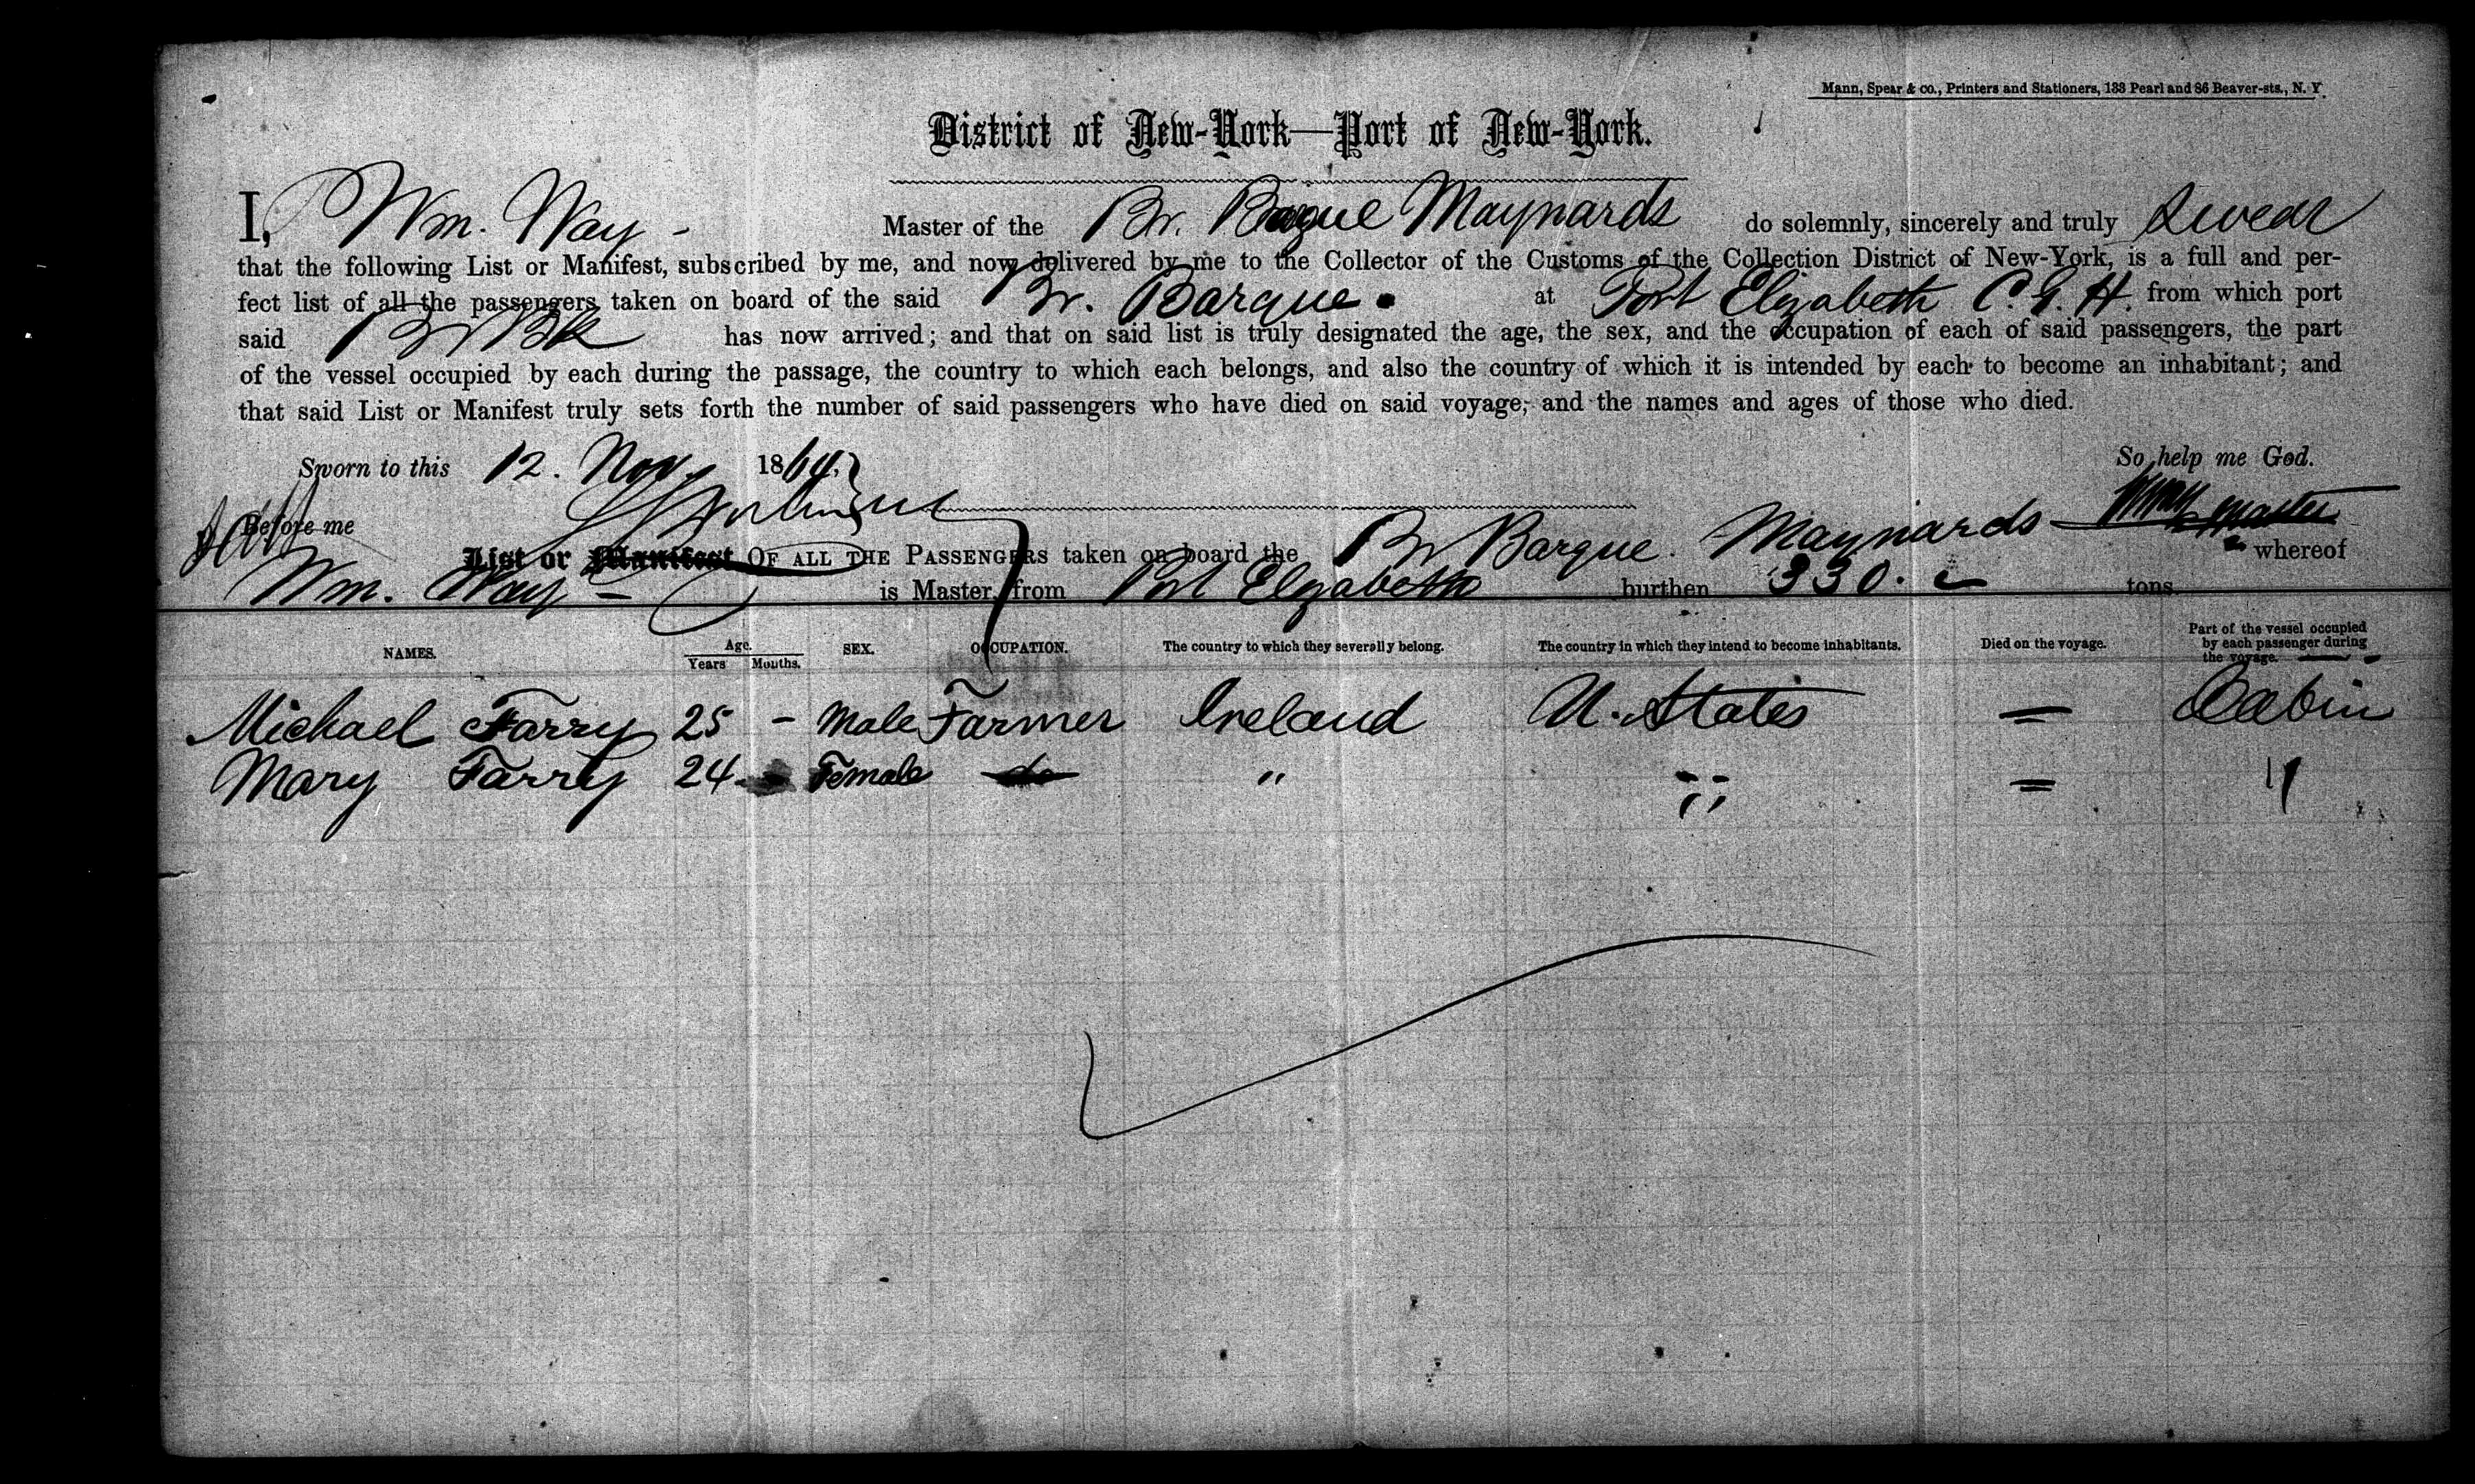 Mann, Spear & co., Printers and Stationers, 133 Pearl and 86 Beaver-sts., N. Y.
District of New-York—Port of New-York.
I, Wm. Way - Master of the Br. Barque Maynards do solemnly, sincerely and truly Swear
that the following List or Manifest, subscribed by me, and now delivered by me to the Collector of the Customs of the Collection District of New-York, is a full and per-
fect list of all the passengers taken on board of the said Br. Barque. at Port Elizabeth C. G. H. from which port
said Br Bk has now arrived; and that on said list is truly designated the age, the sex, and the occupation of each of said passengers, the part
of the vessel occupied by each during the passage, the country to which each belongs, and also the country of which it is intended by each to become an inhabitant; and
that said List or Manifest truly sets forth the number of said passengers who have died on said voyage, and the names and ages of those who died.
Sworn to this 12. Nov. 1864. So help me God.
Before me
List or Manifest OF ALL THE PASSENGERS taken on board the Br Barque. Maynards whereof
Wm. Way - is Master, from Port Elizabeth burthen 330. tons.
NAMES. Age. Years Months. SEX. OCCUPATION. The country to which they severally belong. The country in which they intend to become inhabitants. Died on the voyage. Part of the vessel occupied by each passenger during the voyage.
Michael Farry 25 - Male Farmer Ireland U. States = Cabin
Mary Farry 24 - Female do " " = "